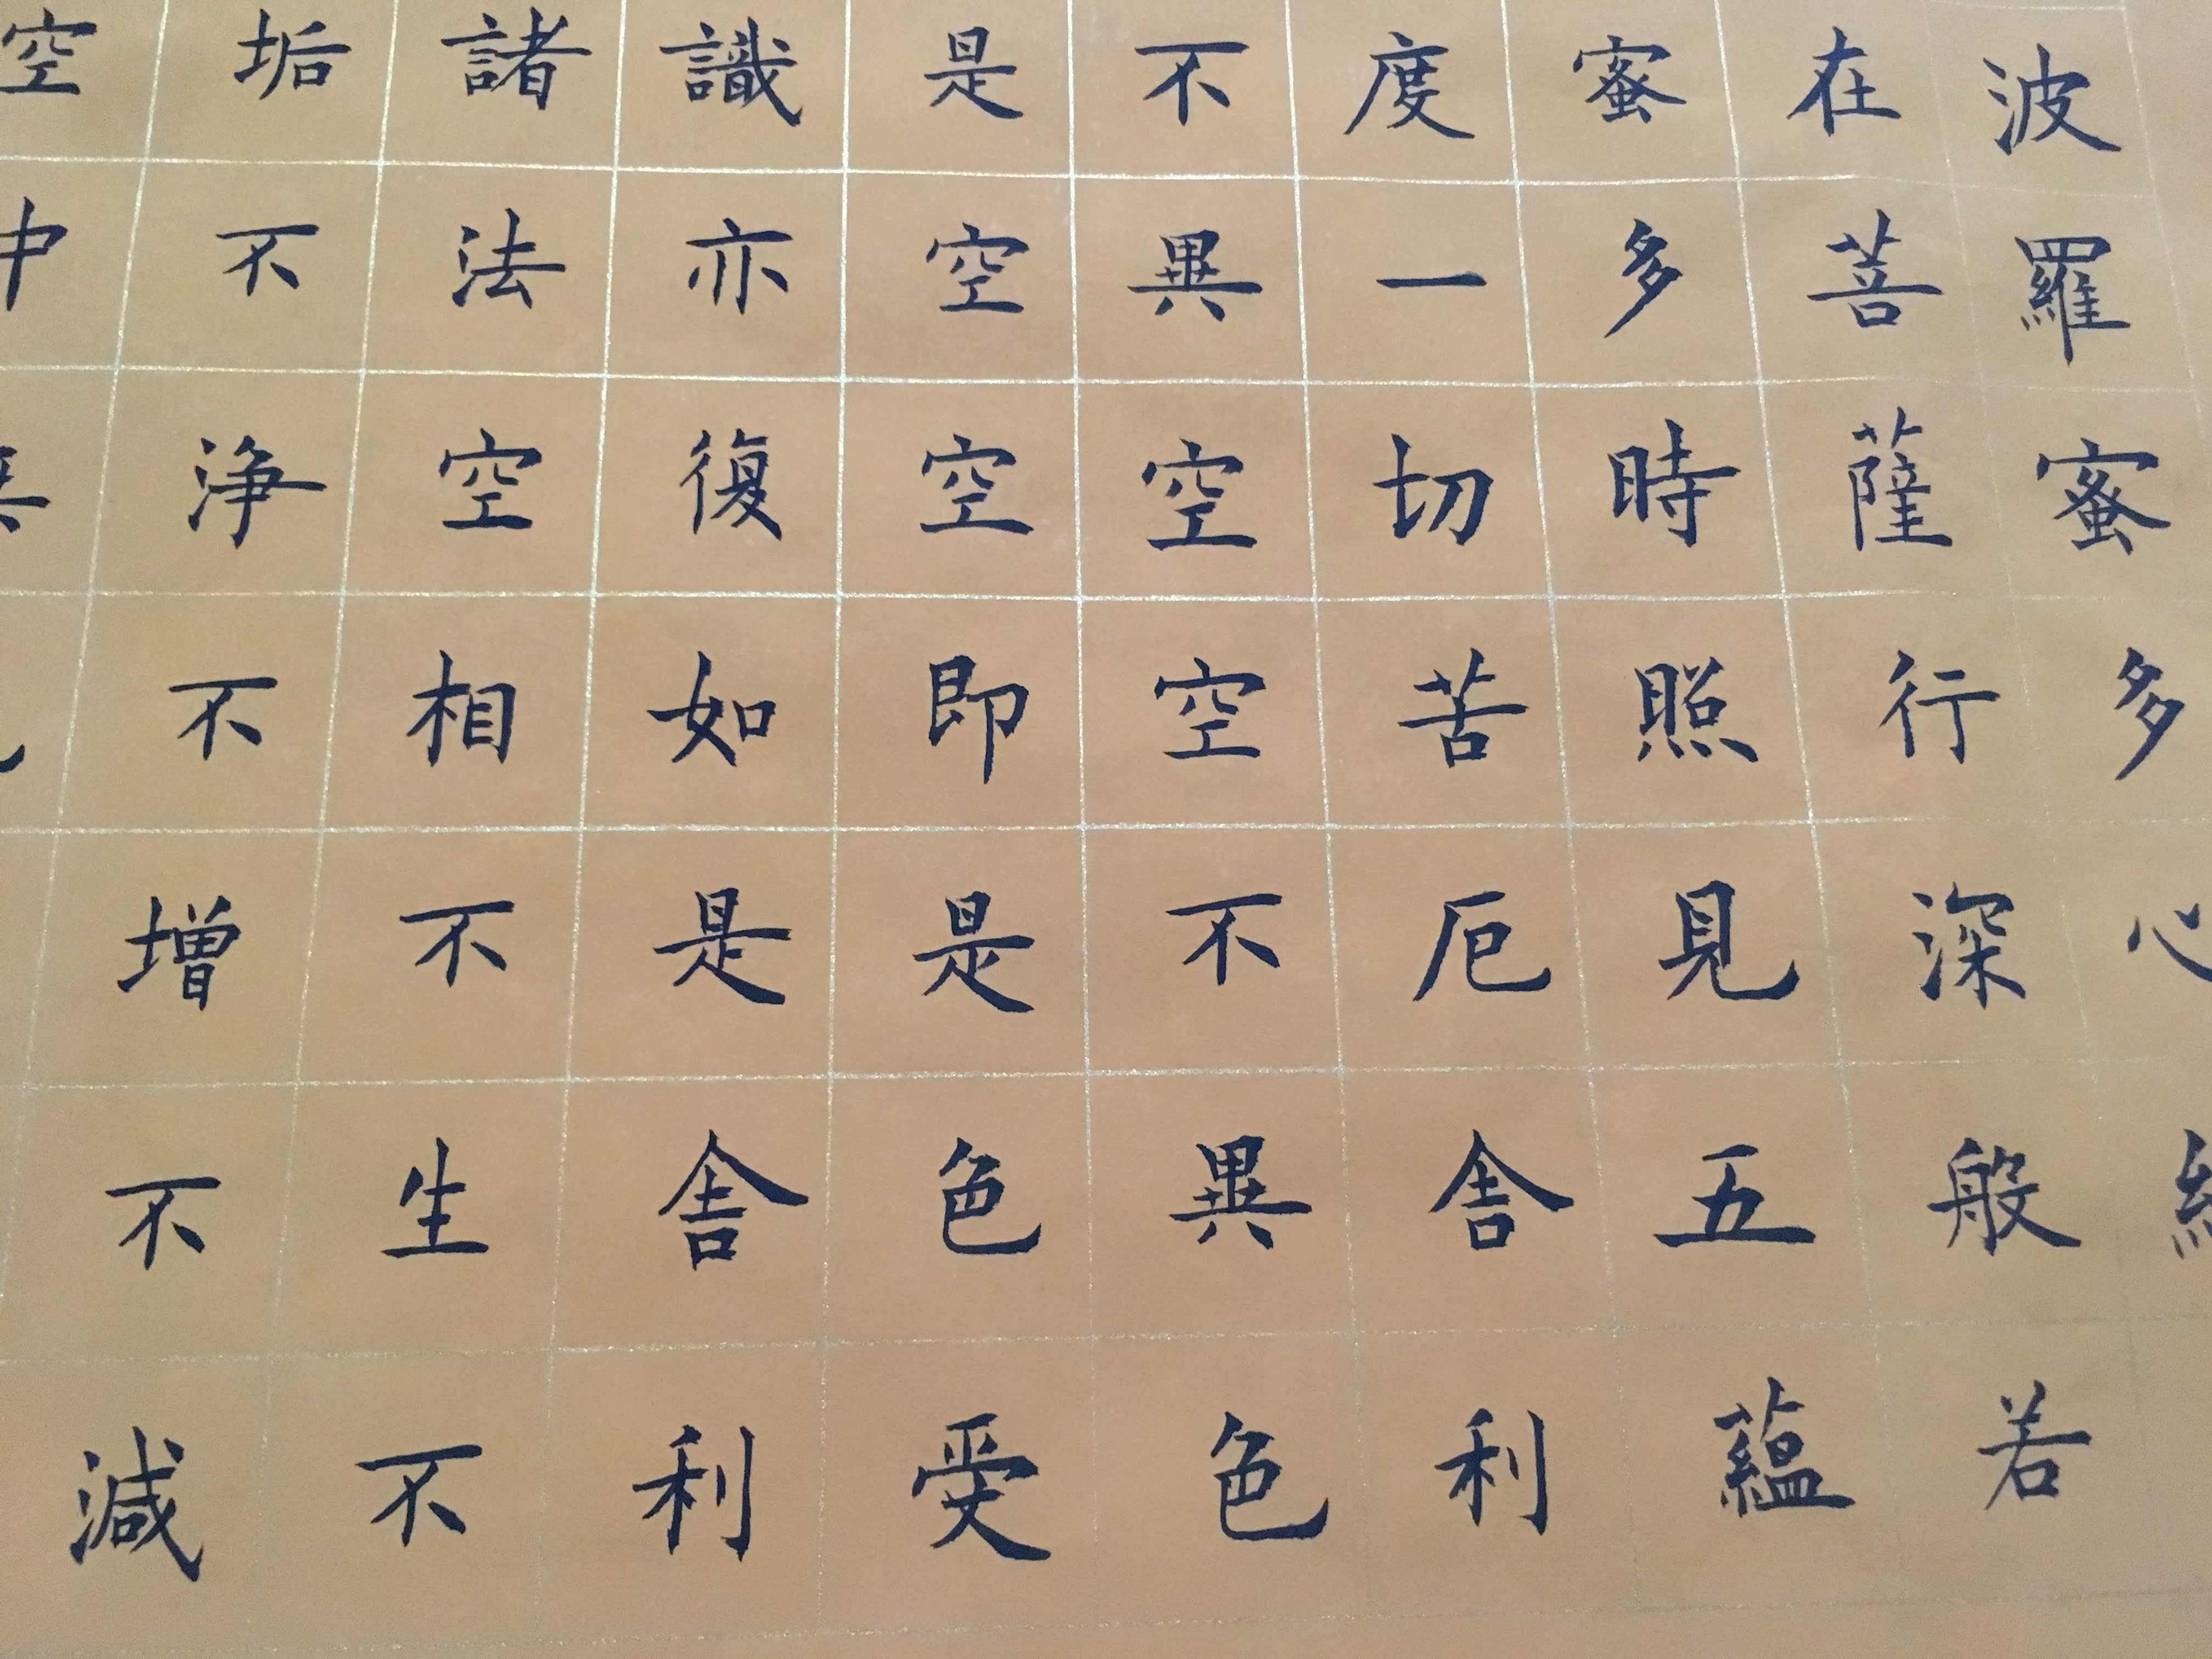 波羅蜜多心
在菩薩行深般若
蜜多時照見五蘊
度一切苦厄舍利
不異空空不異色
是空空即是色受
識亦復如是舍利
諸法空相不生不
垢不浄不增不減
空中